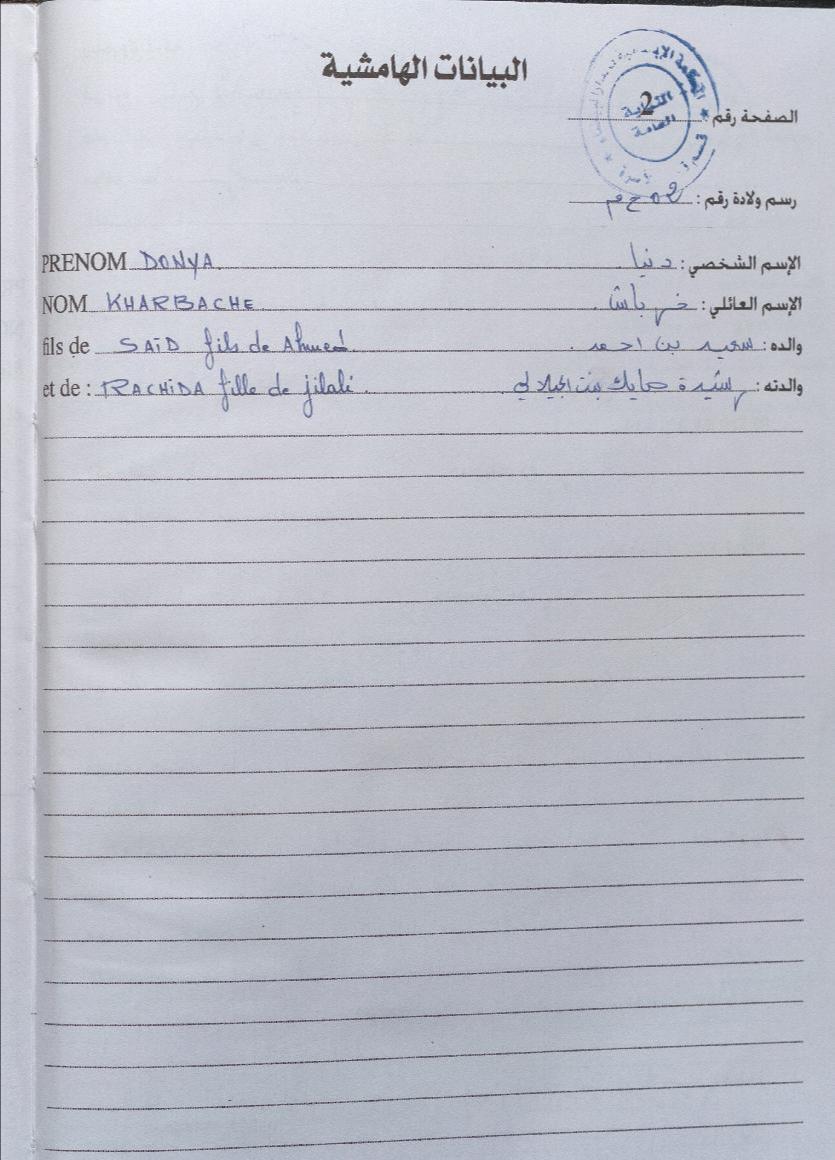 البيانات الهامشية
الصفحة رقم : 2
النيابة العامة
رسم ولادة رقم :
PRENOM DONYA الإسم الشخصي : دنيا
NOM KHARBACHE الإسم العائلي : خرباش
fils de SAÏD fils de Ahmed والده : سعيد بن احمد
et de : RACHIDA fille de jilali والدته : رشيدة صايك بنت الجيلالي